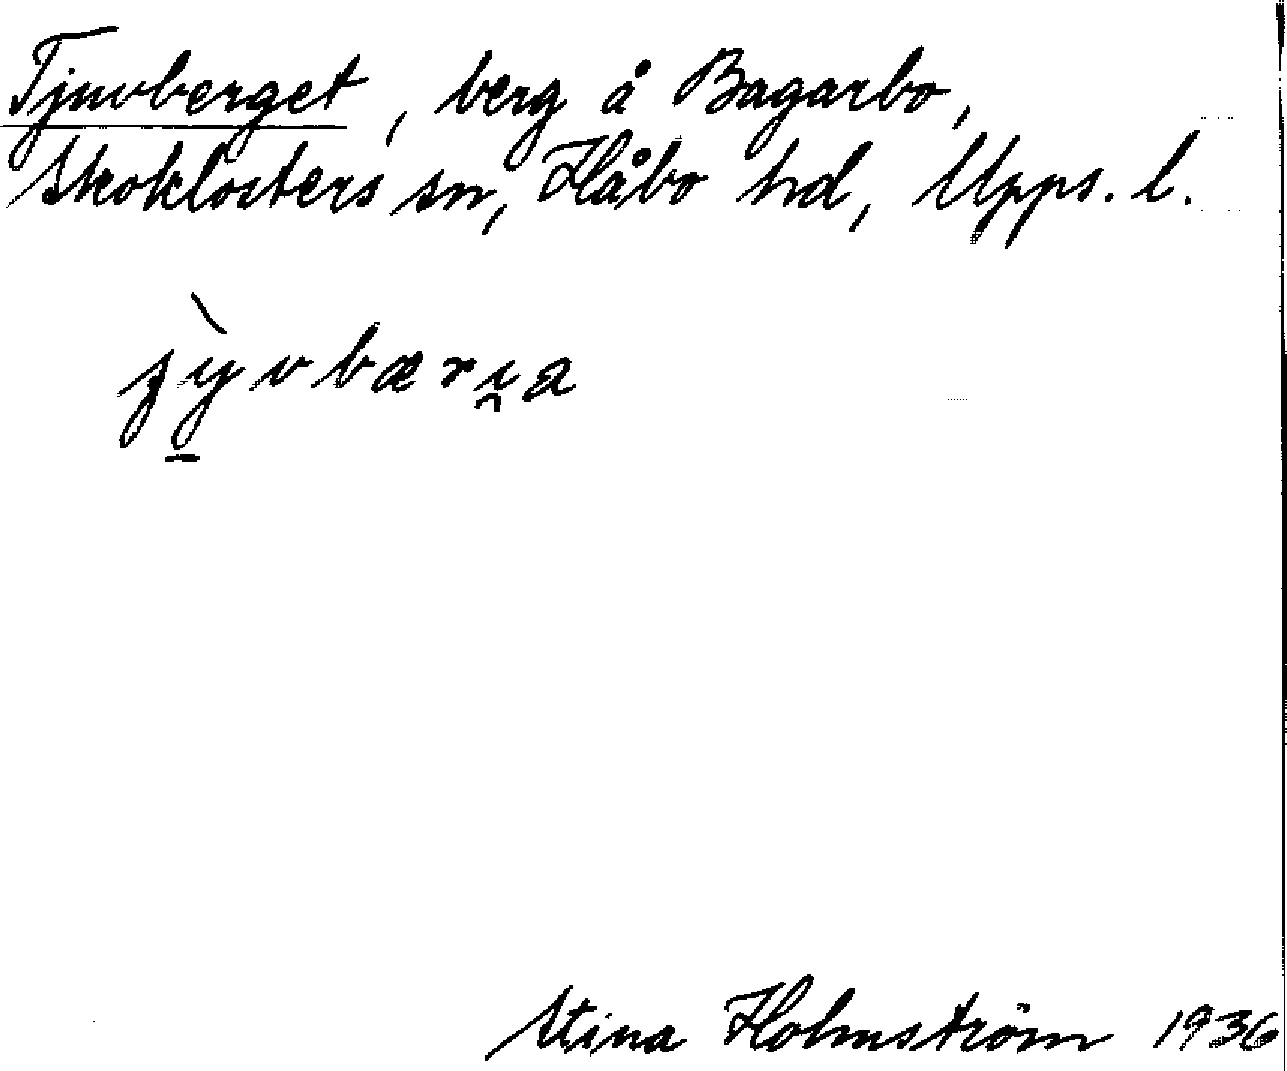 Tjuvberget, berg å Bagarbo,
Skoklosters sn, Håbo hd, Upps. l.
Stina Holmström 1936